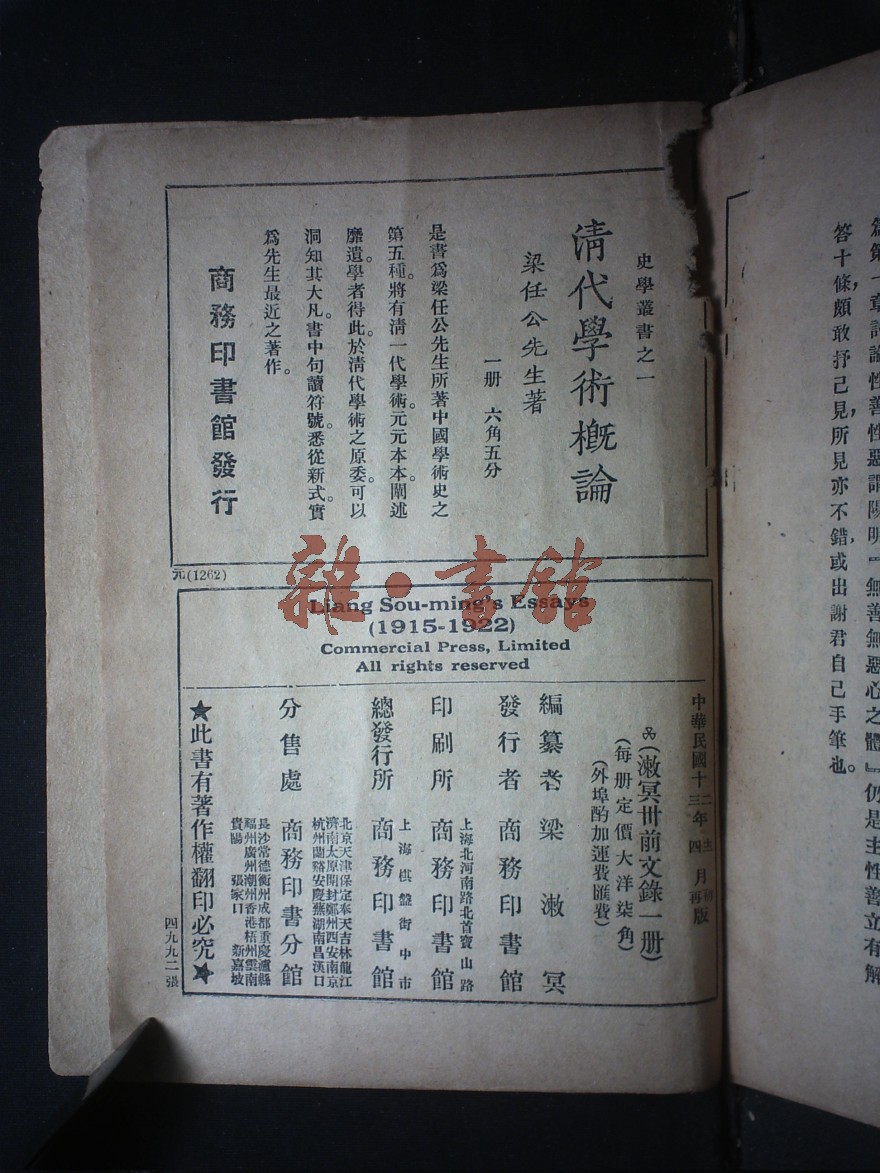 篇第一章討論性善性惡謂陽明『無善無惡心之體』仍是主性善立有解
答十條，頗敢抒己見，所見亦不錯，或出謝君自己手筆也。
史學叢書之一
清代學術概論
梁任公先生著
一册　六角五分
是書爲梁任公先生所著中國學術史之
第五種。將有清一代學術。元元本本。闡述
靡遺。學者得此。於清代學術之原委。可以
洞知其大凡。書中句讀符號。悉從新式。實
爲先生最近之著作。
商務印書館發行
元(1262)
雜·書館
Liang Sou-ming's Essays
(1915-1922)
Commercial Press, Limited
All rights reserved
中華民國十二年十二月初版
三年四月再版
(漱冥卅前文錄一册)
(每册定價大洋柒角)
(外埠酌加運費匯費)
編纂者　梁漱冥
發行者　商務印書館
印刷所　上海北河南路北首寶山路　商務印書館
總發行所　上海棋盤街中市　商務印書館
分售處　商務印書分館
北京天津保定奉天吉林龍江
濟南太原開封鄭州西安南京
杭州蘭谿安慶蕪湖南昌漢口
長沙常德衡州成都重慶瀘縣
福州廣州潮州香港梧州雲南
貴陽　張家口　新嘉坡
★此書有著作權翻印必究★
四九九二張